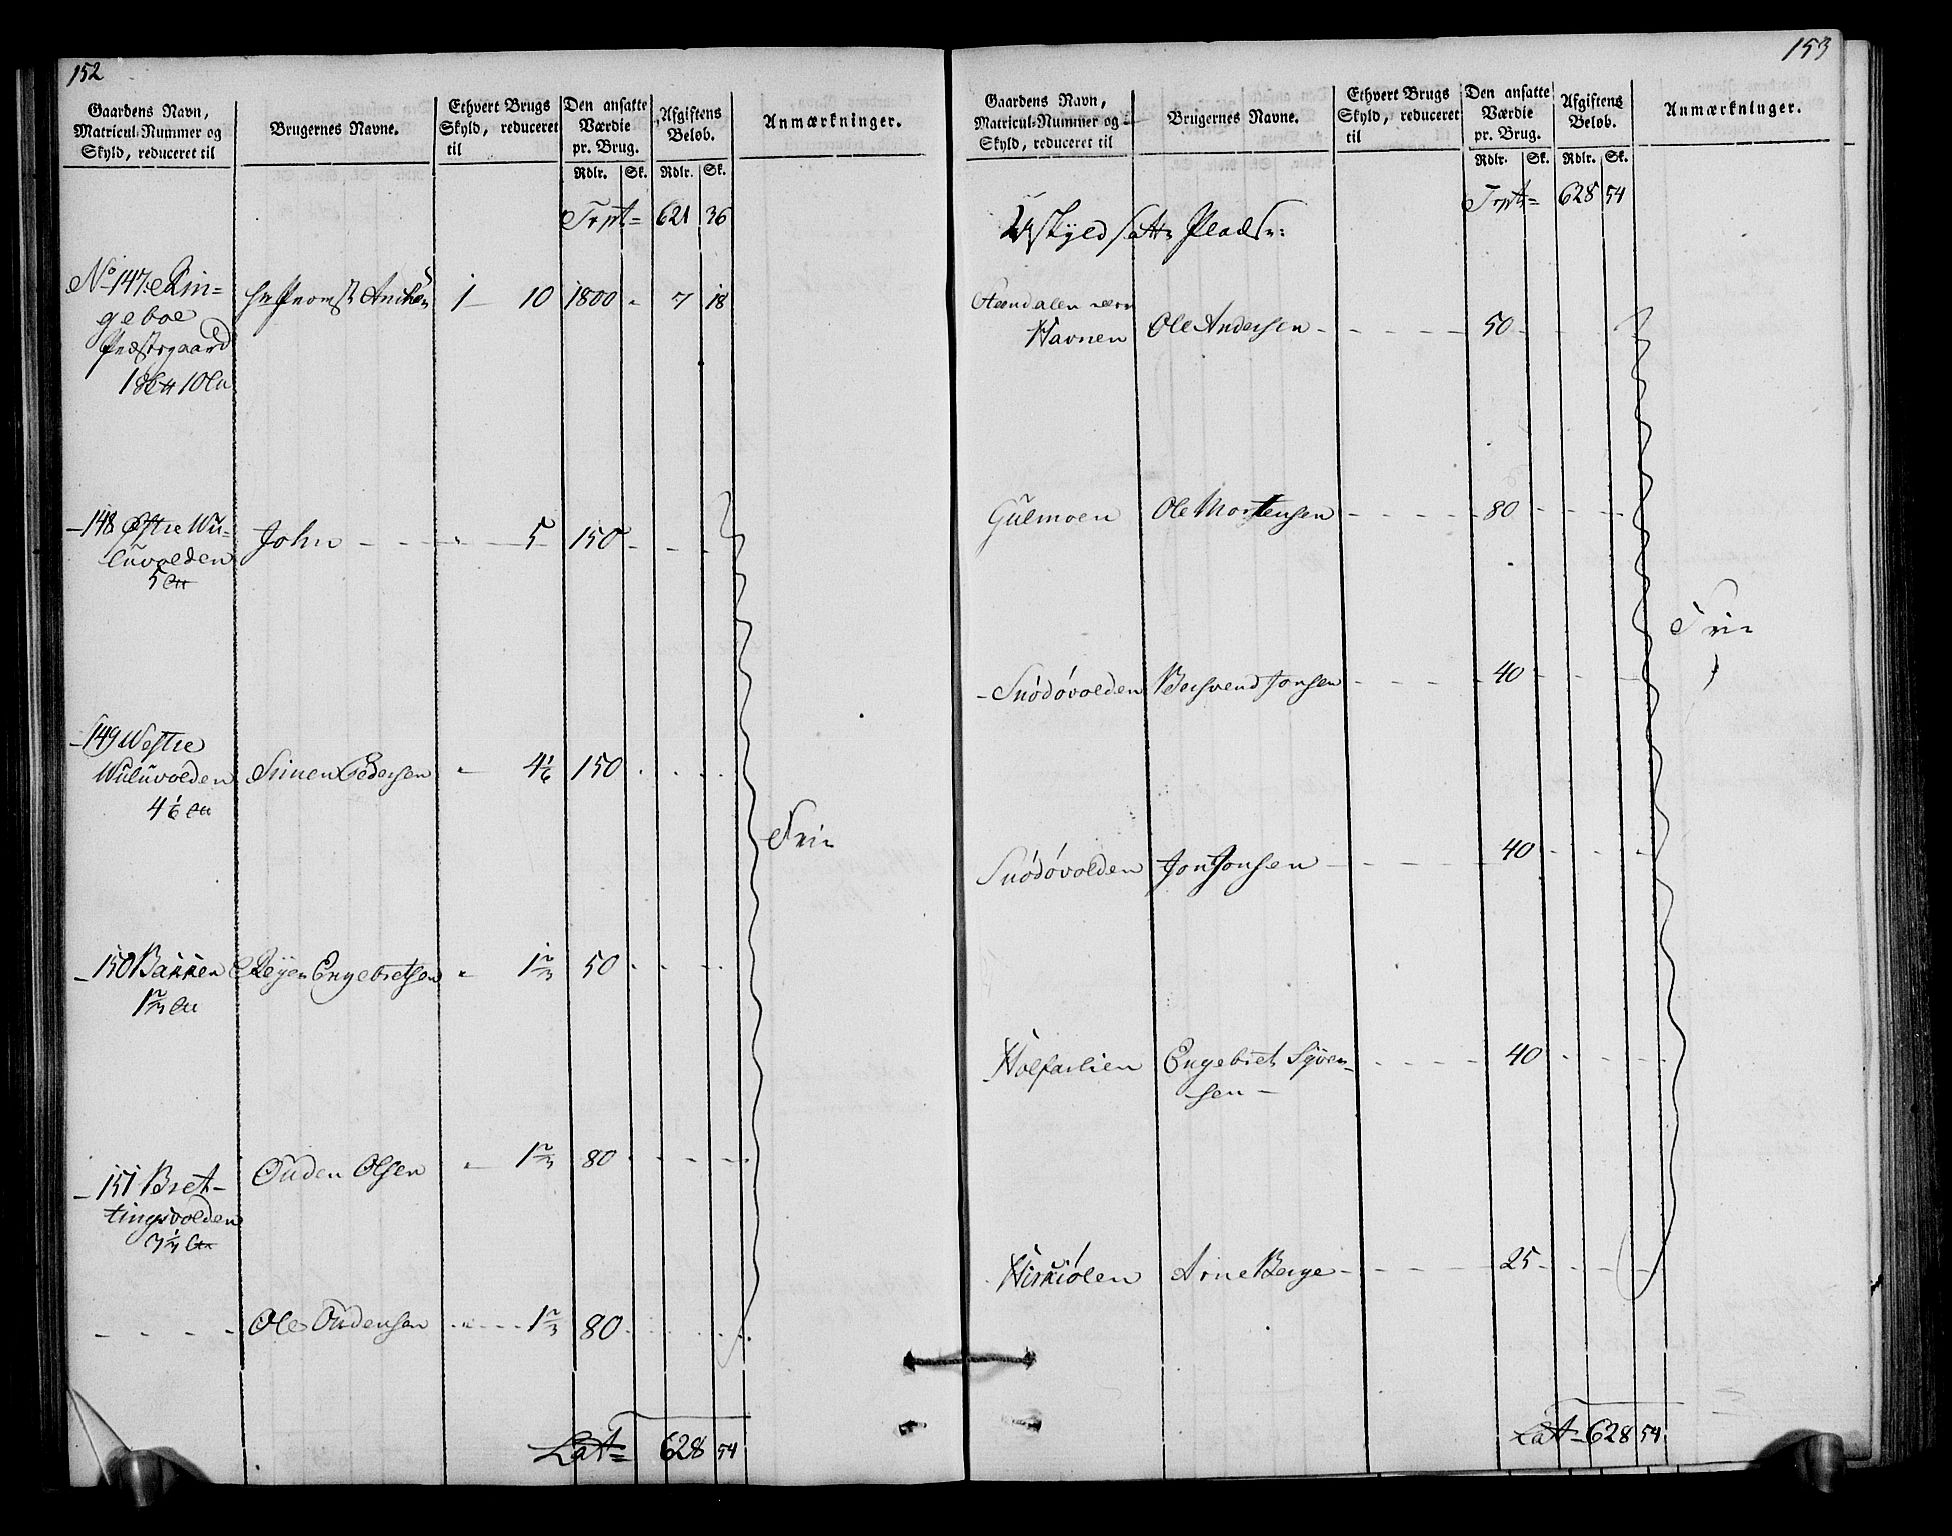 152
Gaardens Navn,
Matricul-Nummer og
Skyld, reduceret til
Brugernes Navne.
Ethvert Brugs
Skyld, reduceret
til
Den ansatte
Værdie
pr. Brug.
Afgiftens
Beløb.
Anmærkninger.
Rdlr. Sk. Rdlr. Sk.
Trpt= 621 36
No 147. Rin=
geboe
Præstegaard
1 10
Hr Provst 1 - 10 1800 - 7 18
- 148 Østre Wu-
luvolden
5
John - - - " 5 150 - - -
- 149 Westre
Wuluvolden
4 1/6
Simen Pedersen " 4 1/6 150 - - -
Frie
- 150 Bakken
1 2/3
Engebretsen " 1 2/3 50 - - -
- 151 Bret-
tingsvolden
3 1/3
Ouden Olsen " 1 2/3 80 - - -
- - - - Ole Oudensen - " - 1 2/3 80 - - -
Lat= 628 54
153
Gaardens Navn,
Matricul-Nummer og
Skyld, reduceret til
Brugernes Navne.
Ethvert Brugs
Skyld, reduceret
til
Den ansatte
Værdie
pr. Brug.
Afgiftens
Beløb.
Anmærkninger.
Rdlr. Sk. Rdlr. Sk.
Trpt= 628 54
Uskyldsatte Pladse:
Havnen Ole Andersen - - - - 50 - - -
Gulmoen Ole Mortensen - - - - 80 - - -
Frie
- Snödövolden Bersvend Jonsen - - - - 40 - - -
Snödövolden Jon Jonsen - - - - 40 - - -
Holfarlien Engebret Syver=
sen - - - - - 40 - - -
Hirkiølen Arne Berge - - - - 25 - - -
Lat= 628 54